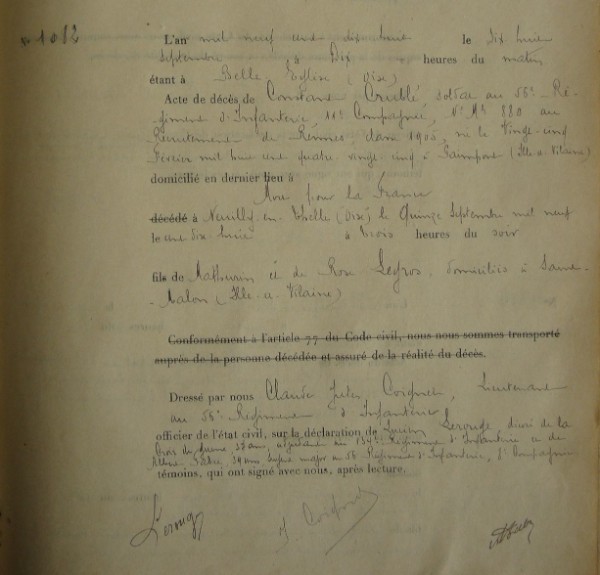 N° 1012
L'an mil neuf cent dix huit le dix huit
septembre à Dix heures du matin
étant à Belle Eglise (Oise)
Acte de décès de Constant Crublé, soldat au 56e Ré-
giment d'Infanterie, 11e Compagnie, N° Mle 880 au
Recrutement de Rennes, classe 1905, né le Vingt-cinq
Février mil huit cent quatre vingt cinq à Paimpont (Ille-et-Vilaine)
domicilié en dernier lieu à
Mort pour la France
décédé à Neuilly-en-Thelle (Oise) le Quinze Septembre mil neuf
le cent dix-huit à trois heures du soir
fils de Mathurin et de Rose Legros, domiciliés à Saint-
-Malon (Ille-et-Vilaine)
Conformément à l'article 77 du Code civil, nous nous sommes transporté
auprès de la personne décédée et assuré de la réalité du décès.
Dressé par nous Claude Coignet, Lieutenant
au 56e Régiment d'Infanterie
officier de l'état civil, sur la déclaration de Lucien Lerouge, décoré de la
Croix de guerre, ans, au 134e Régiment d'Infanterie et de
ans, major au 56e Régiment d'Infanterie, Compagnie
témoins, qui ont signé avec nous, après lecture.
Lerouge J. Coignet